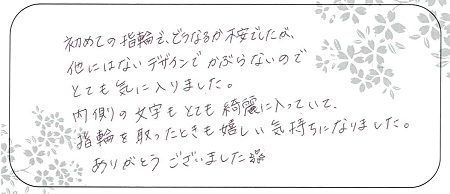 初めての指輪で、どうなるか不安でしたが、
他にはないデザインでかぶらないので
とても気に入りました。
内側の文字もとても綺麗に入っていて、
指輪を取ったときも嬉しい気持ちになりました。
ありがとうございました